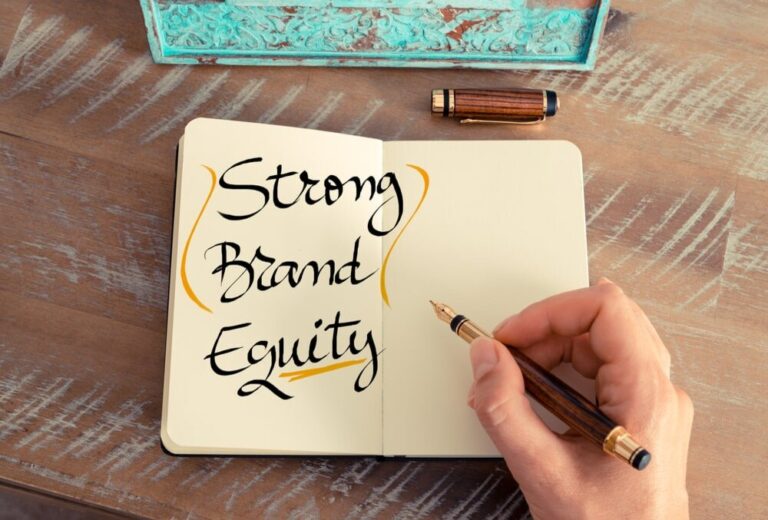 Strong
Brand
Equity